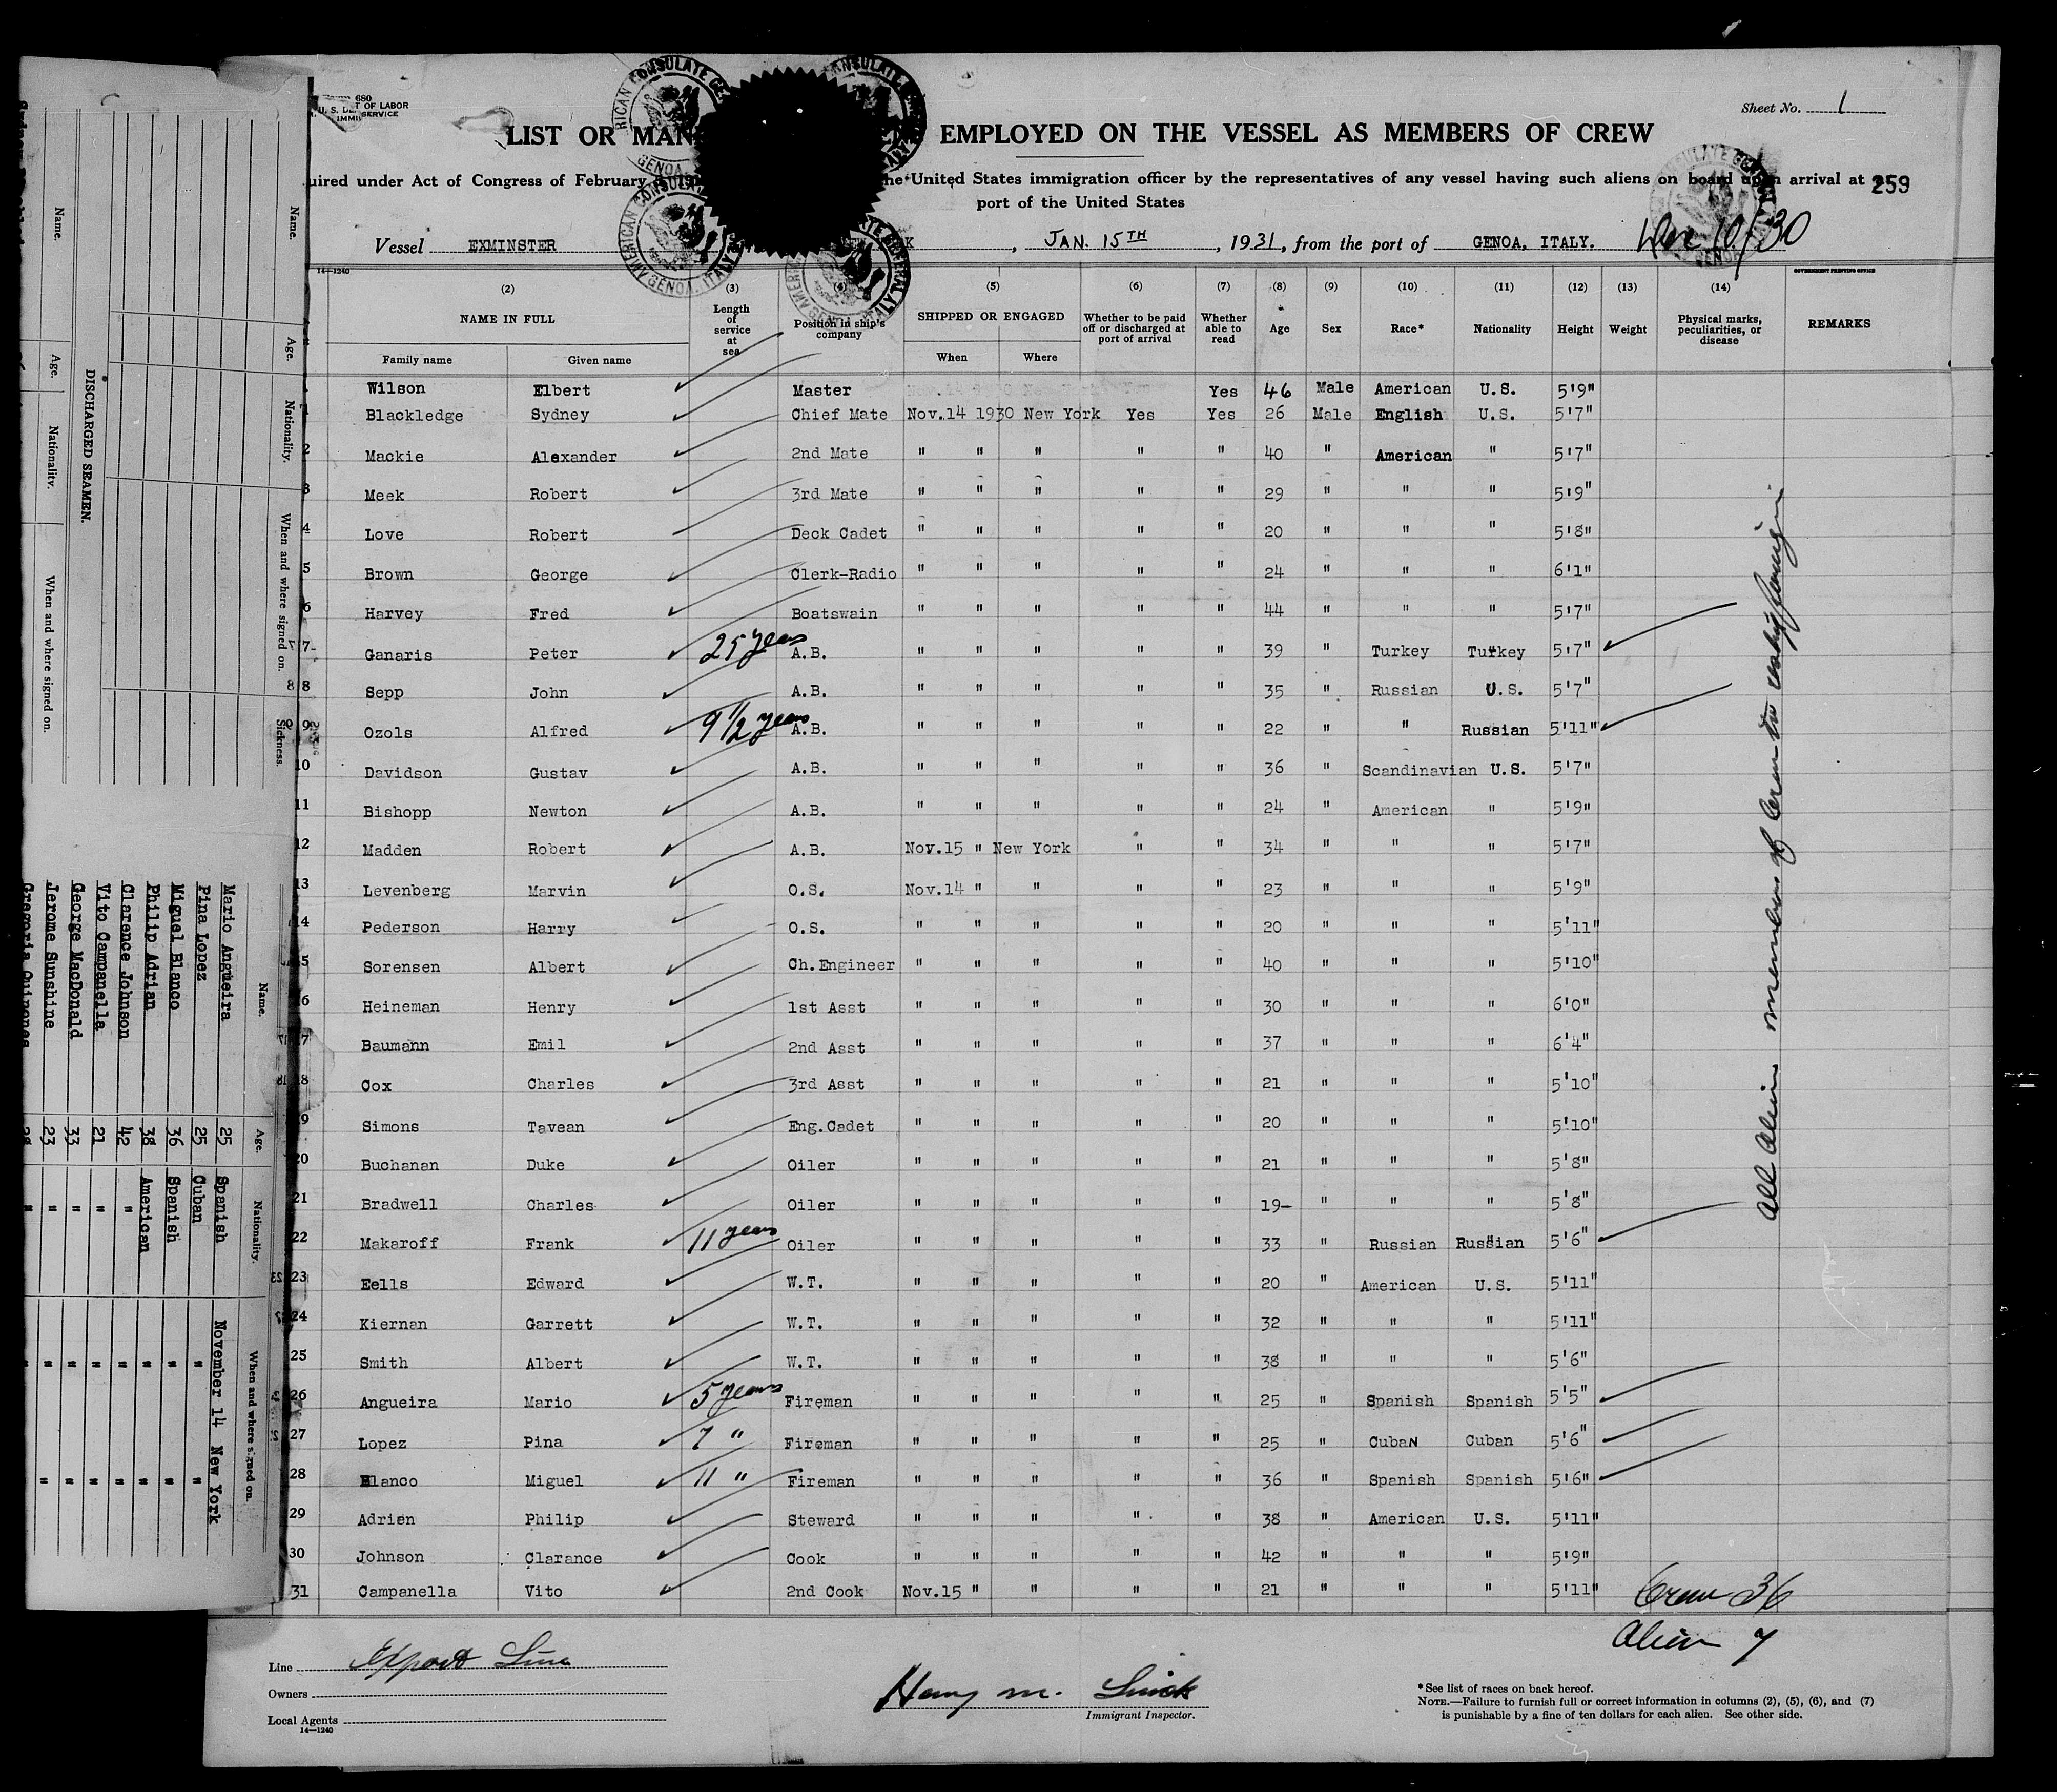 680
U. S. DE T OF LABOR
IMMI SERVICE
Sheet No. 1
LIST OR MAN EMPLOYED ON THE VESSEL AS MEMBERS OF CREW
uired under Act of Congress of February he United States immigration officer by the representatives of any vessel having such aliens on board upon arrival at 259
port of the United States
Vessel EXMINSTER K, JAN. 15TH, 1931, from the port of GENOA, ITALY. Dec 10/30
14—1240
GOVERNMENT PRINTING OFFICE
(2) (3) (4) (5) (6) (7) (8) (9) (10) (11) (12) (13) (14)
NAME IN FULL Length of service at sea Position in ship's company SHIPPED OR ENGAGED Whether to be paid off or discharged at port of arrival Whether able to read Age Sex Race* Nationality Height Weight Physical marks, peculiarities, or disease REMARKS
Family name Given name When Where
Wilson Elbert Master Yes 46 Male American U.S. 5'9"
1 Blackledge Sydney Chief Mate Nov.14 1930 New York Yes Yes 26 Male English U.S. 5'7"
2 Mackie Alexander 2nd Mate " " " " " 40 " American " 5'7"
3 Meek Robert 3rd Mate " " " " " 29 " " " 5'9"
4 Love Robert Deck Cadet " " " " " 20 " " " 5'8"
5 Brown George Clerk-Radio " " " " " 24 " " " 6'1"
6 Harvey Fred Boatswain " " " " " 44 " " " 5'7"
7 Ganaris Peter 25 years A.B. " " " " " 39 " Turkey Turkey 5'7"
8 Sepp John A.B. " " " " " 35 " Russian U.S. 5'7"
9 Ozols Alfred 9 1/2 years A.B. " " " " " 22 " " Russian 5'11"
10 Davidson Gustav A.B. " " " " " 36 " Scandinavian U.S. 5'7"
11 Bishopp Newton A.B. " " " " " 24 " American " 5'9"
12 Madden Robert A.B. Nov.15 " New York " " 34 " " " 5'7"
13 Levenberg Marvin O.S. Nov.14 " " " " 23 " " " 5'9"
14 Pederson Harry O.S. " " " " " 20 " " " 5'11"
5 Sorensen Albert Ch.Engineer " " " " " 40 " " " 5'10"
6 Heineman Henry 1st Asst " " " " " 30 " " " 6'0"
7 Baumann Emil 2nd Asst " " " " " 37 " " " 6'4"
18 Cox Charles 3rd Asst " " " " " 21 " " " 5'10"
9 Simons Tavean Eng.Cadet " " " " " 20 " " " 5'10"
20 Buchanan Duke Oiler " " " " " 21 " " " 5'8"
21 Bradwell Charles Oiler " " " " " 19- " " " 5'8"
22 Makaroff Frank 11 years Oiler " " " " " 33 " Russian Russian 5'6"
23 Eells Edward W.T. " " " " " 20 " American U.S. 5'11"
24 Kiernan Garrett W.T. " " " " " 32 " " " 5'11"
25 Smith Albert W.T. " " " " " 38 " " " 5'6"
26 Angueira Mario 5 years Fireman " " " " " 25 " Spanish Spanish 5'5"
27 Lopez Pina 7 " Fireman " " " " " 25 " Cuban Cuban 5'6"
28 Blanco Miguel 11 " Fireman " " " " " 36 " Spanish Spanish 5'6"
29 Adrien Philip Steward " " " " " 38 " American U.S. 5'11"
30 Johnson Clarance Cook " " " " " 42 " " " 5'9"
31 Campanella Vito 2nd Cook Nov.15 " " " " 21 " " " 5'11"
All Aliens members of Crew to reship foreign
Crew 36
Alien 7
Line Export Line
Owners
Local Agents
14—1240
Immigrant Inspector.
*See list of races on back hereof.
NOTE.—Failure to furnish full or correct information in columns (2), (5), (6), and (7)
is punishable by a fine of ten dollars for each alien. See other side.
DISCHARGED SEAMEN.
Name. Age. Nationality. When and where signed on.
Name. Age. Nationality. When and where signed on. Sickness.
Name. Age. Nationality. When and where signed on.
Mario Angueira 25 Spanish November 14 New York
Pina Lopez 25 Cuban " "
Miguel Blanco 36 Spanish " "
Philip Adrian 38 American " "
Clarence Johnson 42 " " "
Vito Campanella 21 " " "
George MacDonald 33 " " "
Jerome Sunshine 23 " " "
AMERICAN CONSULATE GENERAL
GENOA, ITALY